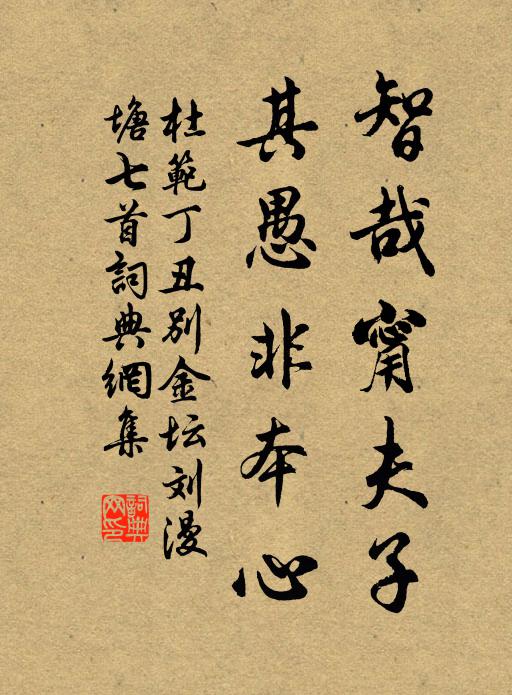 智哉甯夫子
其愚非本心
杜範丁丑别金坛刘漫
塘七首詞典網集
詞典網印